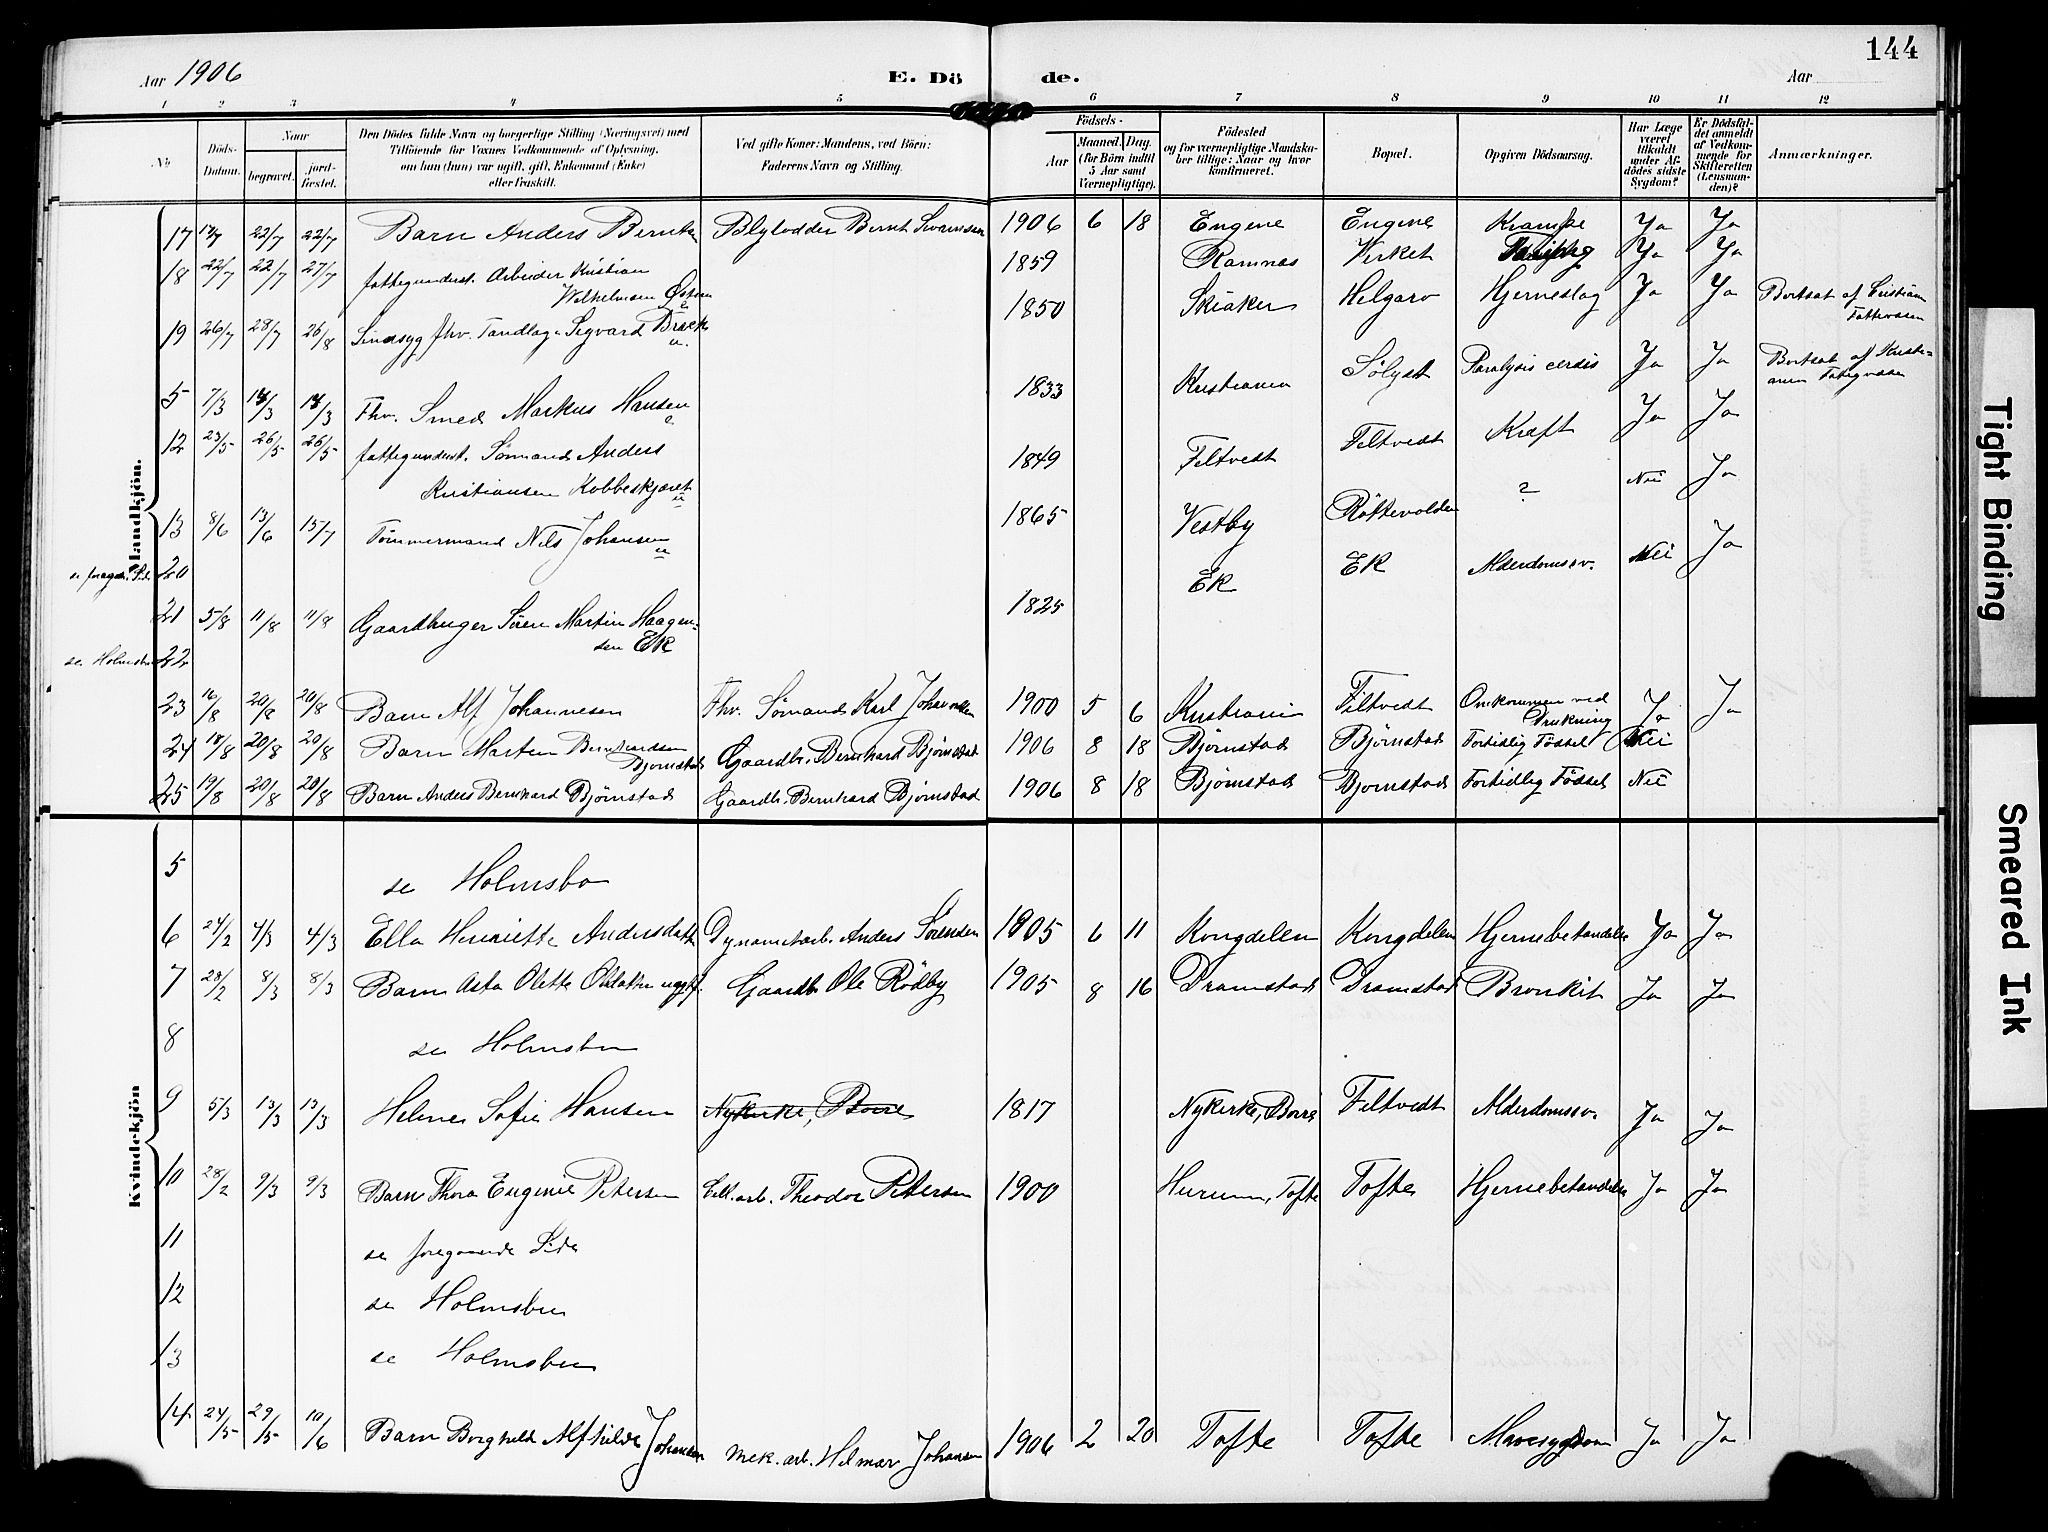 144
Aar 1906
E. Dö de.
Aar
1 2 3 4 5 6 7 8 9 10 11 12
No
Döds-Datum.
Naar
begravet.
jord-fæstet.
Den Dödes fulde Navn og borgerlige Stilling (Næringsvei) med
Tilföiende for Voxnes Vedkommende af Oplysning,
om han (hun) var ugift, gift, Enkemand (Enke)
eller fraskilt.
Ved gifte Koner: Mandens, ved Börn:
Faderens Navn og Stilling.
Födsels-
Aar
Maaned. Dag.
(for Börn indtil
5 Aar samt
Værnepligtige).
Födested
og for værnepligtige Mandska-
ber tillige: Naar og hvor
konfirmeret.
Bopæl.
Opgiven Dödsaarsag.
Har Læge
været
tilkaldt
under Af-
dödes sidste
Sygdom?
Er Dödsfal-
det anmeldt
af Vedkom-
mende for
Skifteretten
(Lensman-
den)?
Anmærkninger.
Mandkjön.
17 23/7 22/7 Barn Anders Bernts. Blylodder Bernt 1906 6 18 Engene Engene Krampe Ja Ja
18 22/7 22/7 27/7 fattigunderst. Arbeider Kristian 1859 Ramnæs Virket Ja Ja
Wilhelmsen Østern
19 26/7 28/7 26/8 Sindsyg fhv. Tandlæge Sigvard Bræck 1850 Skiaker Helgarø Hjerneslag Ja Ja Bortsat af Cristiania Fattigvæsen
5 7/3 13/3 13/3 Fhv. Smed Markus Hansen 1833 Kristiania Sölyst Paralysis cordis Ja Ja Bortsat af Kristi-
ania Fattigvæsen
12 23/5 26/5 26/5 fattigunderst. Sömand Anders 1849 Filtvedt Filtvedt Kræft Ja Ja
Kristiansen Kobbeskjæret
13 8/6 13/6 15/7 Tömmermand Nils Johansen 1865 Vestby Röttevolden ? Nei Ja
se foregde. Side 20
21 5/8 11/8 11/8 Gaardbruger Sören Martin Haagen- 1825 Ek Ek Alderdomssv. Nei Ja
sen Ek
se Holmsbu 22
23 16/8 20/8 20/8 Barn Alf Johannesen Fhv. Sömand Karl Johannesen 1900 5 6 Kristiania Filtvedt Omkommen ved Drukning Ja Ja
24 18/8 20/8 20/8 Barn Marten Bernhardsen Bjørnstad Gaardbr. Bernhard Bjørnstad 1906 8 18 Bjørnstad Bjørnstad Fortidlig Födsel Nei
25 19/8 20/8 20/8 Barn Anders Bernhard Bjørnstad Gaardbr. Bernhard Bjørnstad 1906 8 18 Bjørnstad Bjørnstad Fortidlig Födsel Nei
Kvindekjön
5 se Holmsbo
6 24/2 4/3 4/3 Ella Henriette Andersdatter Dynamitarb. Anders Sörensen 1905 6 11 Kongdelen Kongdelen Hjernebetændelse Ja Ja
7 28/2 8/3 8/3 Barn Asta Olette Olsdatter Gaardbr. Ole Rödby 1905 8 16 Dramstad Dramstad Bronkit Ja Ja
8 se Holmsbu
9 5/3 13/3 13/3 Helene Sofie Hansen Nykirke, Borre 1817 Nykirke, Borre Filtvedt Alderdomssv. Ja Ja
10 28/2 9/3 9/3 Barn Thora Eugenie Petersen Cell. arb. Theodor Petersen 1900 Hurum, Tofte Tofte Hjernebetændelse Ja Ja
11 se foregaaende Side
12 se Holmsbu
13 se Holmsbu
14 24/5 29/5 10/6 Barn Borghild Alfhilde Johansen Mek. arb. Hilmar Johansen 1906 2 20 Tofte Tofte Mavesygdom Ja Ja
Tight Binding
Smeared Ink